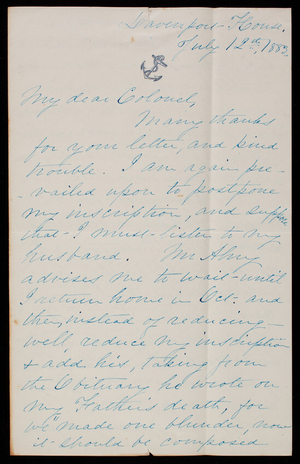 Davenport House.
July 12th, 1883.
My dear Colonel,
Many thanks
for your letter, and kind
trouble. I am again pre-
-vailed upon to postpone
my inscription, and suppose
that I must listen to my
husband. Mr Almy
advises me to wait until
I return home in Oct: and
then, instead of reducing—
well, reduce my inscription
& add his, taking from
the Obituary he wrote on
my Father's death, for
we "made one blunder, now
it should be composed